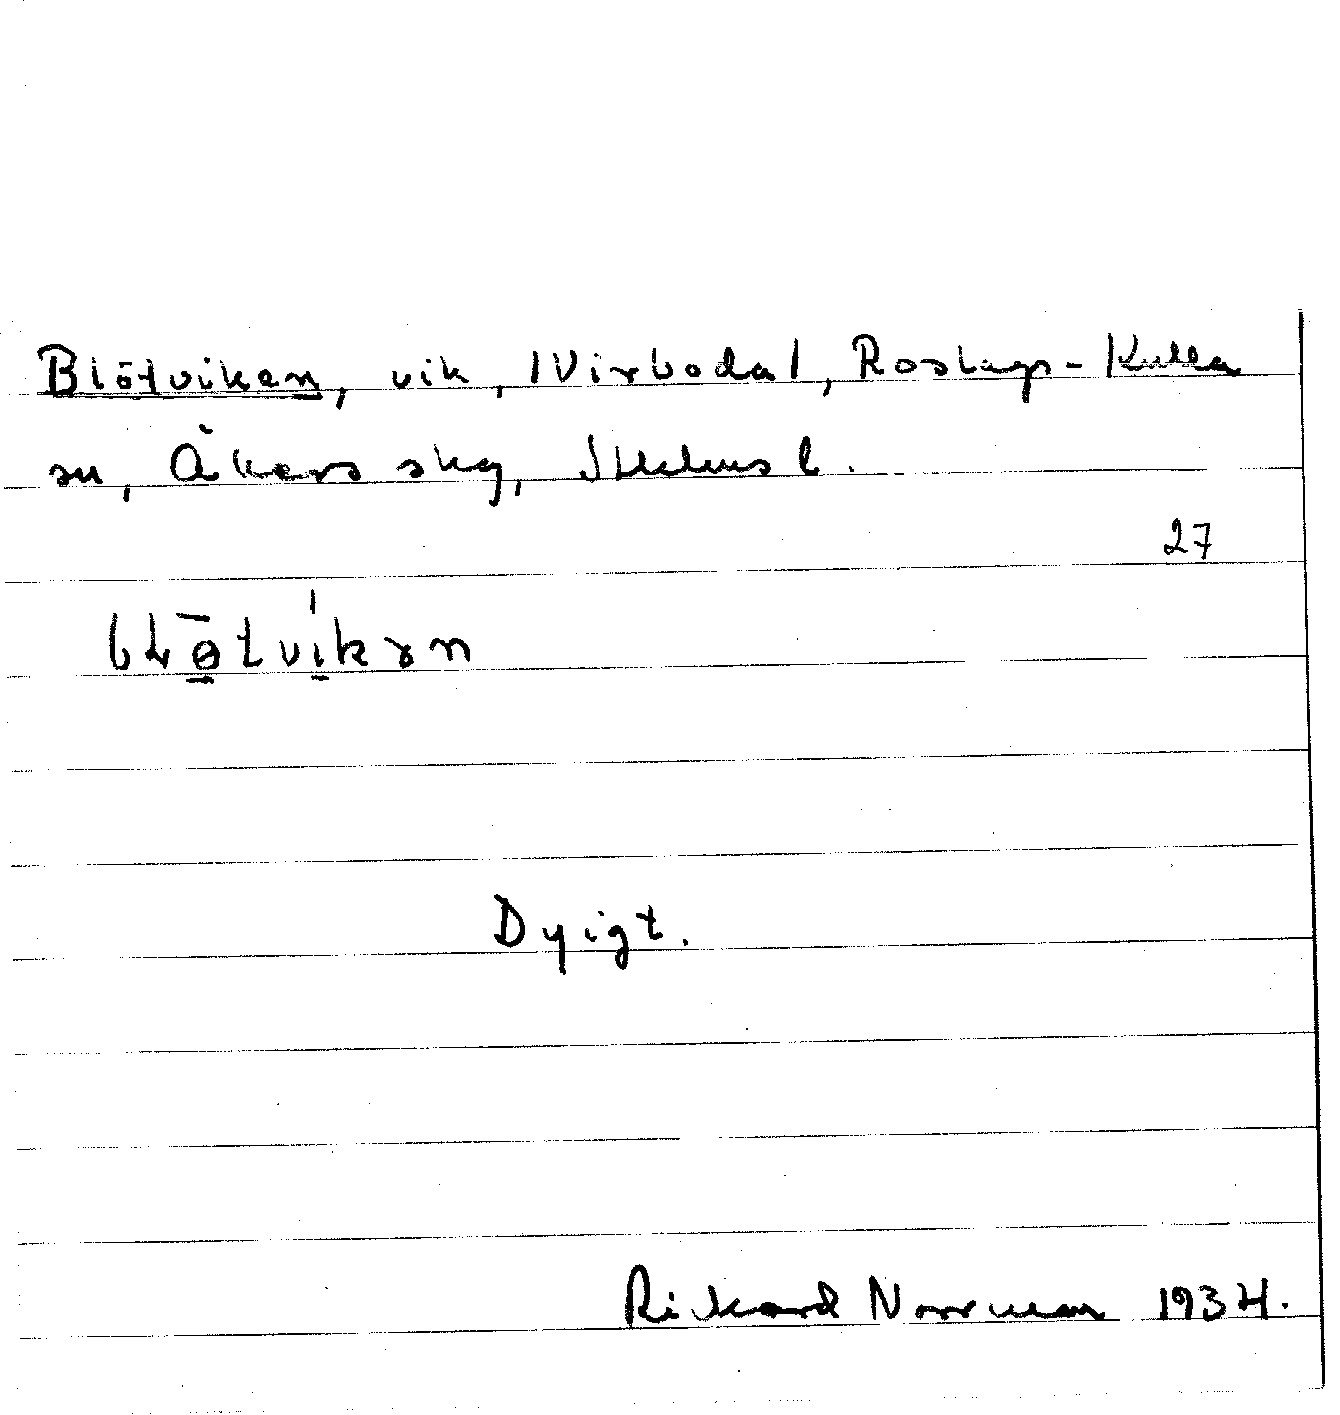 Blötviken, vik, Wirbodal, Roslags-Kulla
sn, Åkers skg, Sthlms l.
27
blø̄tvíkən
Dyigt.
Rickard Norrman 1934.